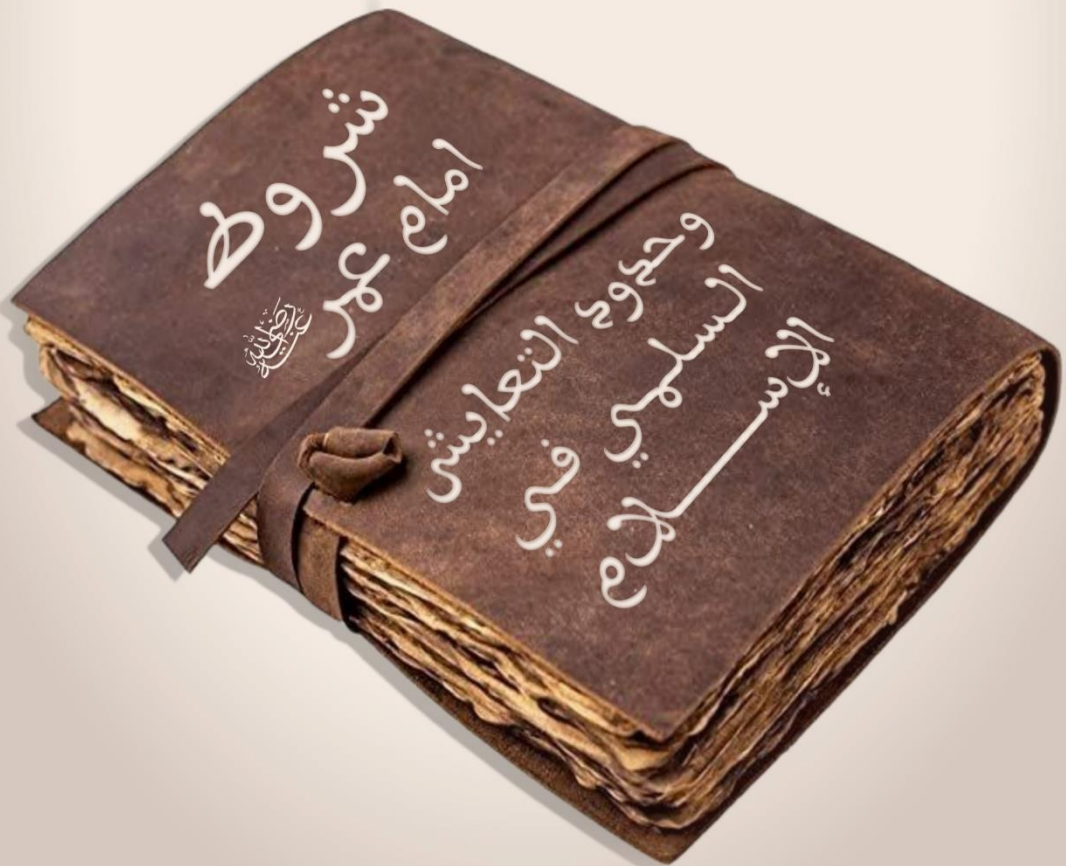 شروط
امام عمر
رضي الله عنه
وحدود التعايش
السلمي في
الإســـلام